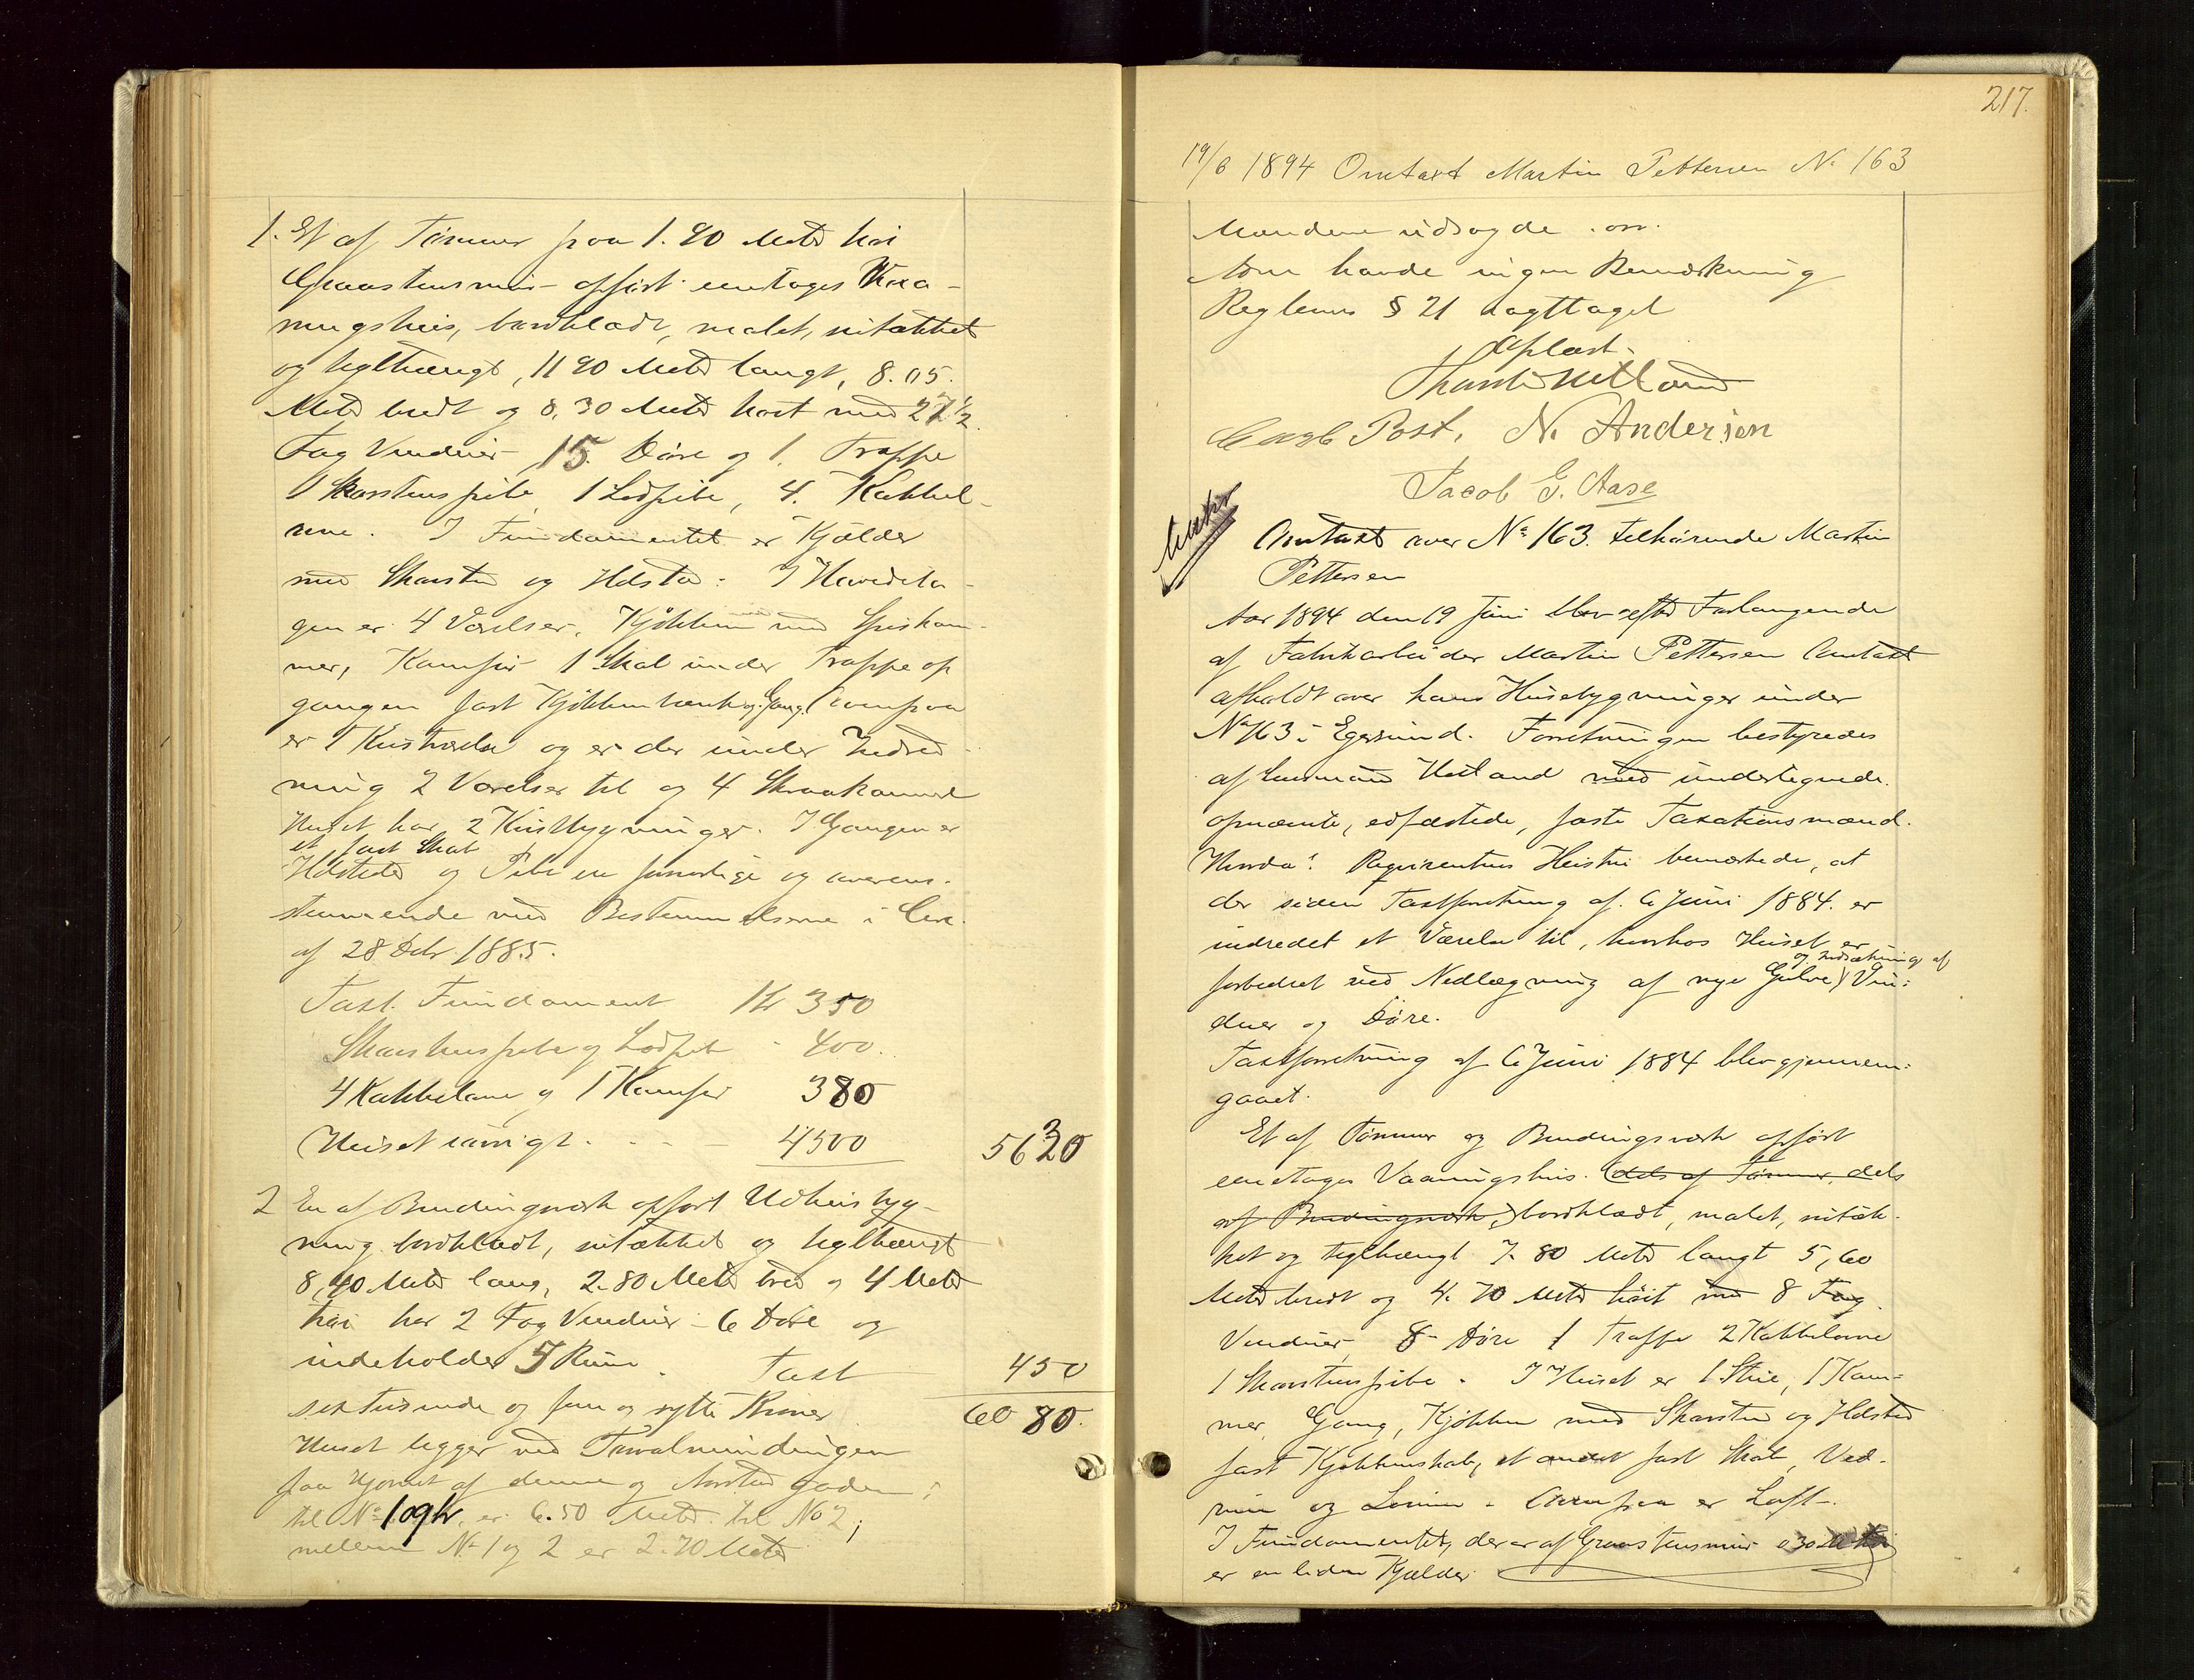 1. Et af Tømmer paa 1.90 Meter høi
Graastensmur opført eenetages Vaa-
ningshus, bordklædt, malet, nitækket
og teglhængt, 11 90 Meter langt, 8.05.
Meter bredt og 8.30 Meter høit med 27 1/2
Fag Vinduer 15 Døre og 1. Trappe
1 Skorstenspibe, 1 Lodpibe, 4. Kakkel-
ovne. I Fundamentet er Kjælder
med Skorsten og Ildsted. I Hovedeta-
gen er 4 Værelser, Kjøkken med Spiskam-
mer, Komfur 1 Skab under Trappeop
gangen fast Kjøkkenbænk og Gang. Ovenpaa
er 1 Kvistværelse og er der under Indred-
ning 2 Værelser til og 4 Skraakammer
Huset har 2 Kvistbygninger. I Gangen er
et fast Skab
Ildsteder og Pibe ere forsvarlige og overens-
stemmende med Bestemmelserne i Circ.
af 28 Debr 1885.
Taxt. Fundament Kr 350
Skorstenspibe og Lodpibe - 400.
4 Kakkelovne og 1 Komfur 380
Huset iøvrigt . . . 4500 5630
2 En af Bindingsværk opført Udhusbyg-
ning bordklædt, nitækket og teglhængt
8,40 Meter lang, 2.80 Meter bred og 4 Meter
høi har 2 Fag Vinduer 6 Døre og
indeholder 5 Rum. Taxt 450
sextusinde og fem og Kroner 60 80.
Huset ligger ved
paa Hjørnet af denne og gaden;
til No 109b er 6.50 Meter til No 2;
mellem No 1 og 2 er 2.70 Meter
217.
19/6 1894 Omtaxt Martin Pettersen No 163
Mændene udsagde
som havde ingen Bemærkning
Reglems § 21 iagttaget
Oplæst.
Hetland
Post, N. Andersen
Jacob G. Aase
Omtaxt over No 163. tilhørende Martin
Pettersen
Aar 1894 den 19 Juni blev efter Forlangende
af Fabrikarbeider Martin Pettersen Omtaxt
afholdt over hans Husebygninger under
No 163 i Egersund. Forretningen bestyredes
af Lensmand Hetland med undertegnede
opnævnte, edfæstede, faste Taxationsmænd.
Hvorda: Rekvirentens Hustru bemærkede, at
der siden Taxtforretning af 6 Juni 1884. er
indredet et Værelse til, hvorhos Huset er
og Indsætning af
forbedret ved Nedlægning af nye Gulve Vin-
duer og Døre.
Taxtforretning af 6 Juni 1884 blev gjennem-
gaaet.
Et af Tømmer og Bindingsværk opført
eenetages Vaaningshus. (dels af Tømmer, dels
af Bindingsværk,) bordklædt, malet, nitæk-
ket og teglhængt 7.80 Meter langt 5,60
Meter bredt og 4.70 Meter høit med 8 Fag
Vinduer, 8 Døre 1 Trappe 2 Kakkelovne
1 Skorstenspibe. I Huset er 1 Stue, 1 Kam-
mer, Gang, Kjøkken med Skorsten og Ildsted
fast Kjøkkenskab, et andet fast Skab, Ved-
rum og . Ovenpaa er Loft.
I Fundamentet, der er af Graastensmur 0 30
er en liden Kjælder